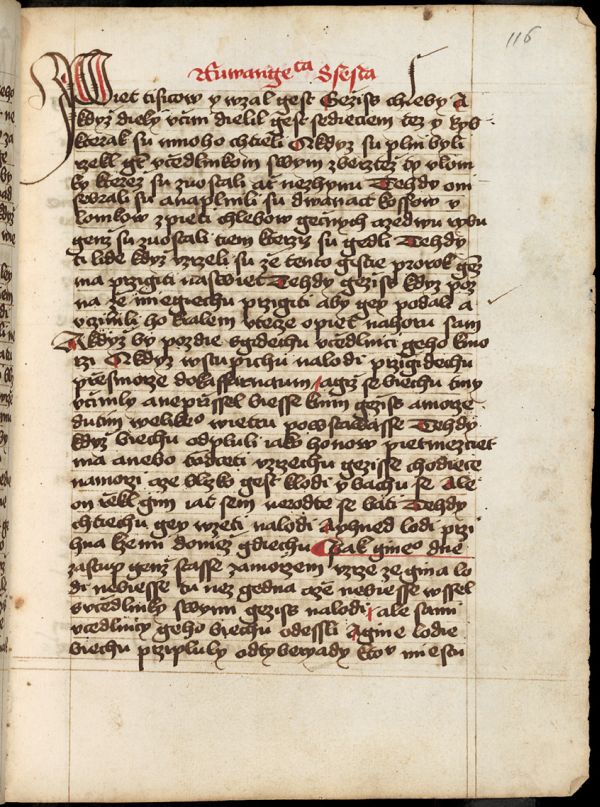 116
Ruwange cta Ssesta
Wiet tisicow y wzal gest Geziss chleby A
kdyz dieky vcini dielil gest sedieciem tez y ryb
kterak su mnoho chtieli Akdyz su plni byli
rzekl gt vcedlnikom swym zberztez ty vlom
ky kterez su zuostali at nezhynu Tehdy oni
sebrali su anaplnili su dwanact kossow v
lomkow zpieti chlebow gecnych azedwu rybu
genz su zuostali tiem kterziz su gedli Tehdy
ti lide kdyz vzrzeli su ze tento gestie prorok genz
ma przigiti naswiet Tehdy geziss kdyz poz
na ze mniegiechu przigiti aby gey podali a
vczinili ho kralem vtecze opiet nahoru sam
Akdyz by pozdie sgidechu vcedlnici geho kmo
rzi Akdyz wstupichu nalodi przigidechu
przesmorze dokaffarnaum agiz se biechu tmy
vcinily aneprissel biesse knim geziss amorze
dutim welikeo wietru powstawasse Tehdy
kdyz biechu odpluli iako honow pietmezciet
ma anebo tridceti vzrzechu gezisse chodiece
namorzi aze blizko gest klodi y bachu se Ale
on rzekl gim iat sem nerodte se bati Tehdy
chtiechu gey wzeti nalodi Ayhned lodi przi
hna kzemi doniez gdiechu Opak gineo dne
zastup genz stasse zamorzem vzrze ze gina lo
di nebiesse tu nez gedna aze nebiesse wssel
svcedlniky swymi geziss nalodi ale sami
vcedlnicy geho biechu odessli Agine lodie
biechu przipluly odtyberyady Kdv miestu